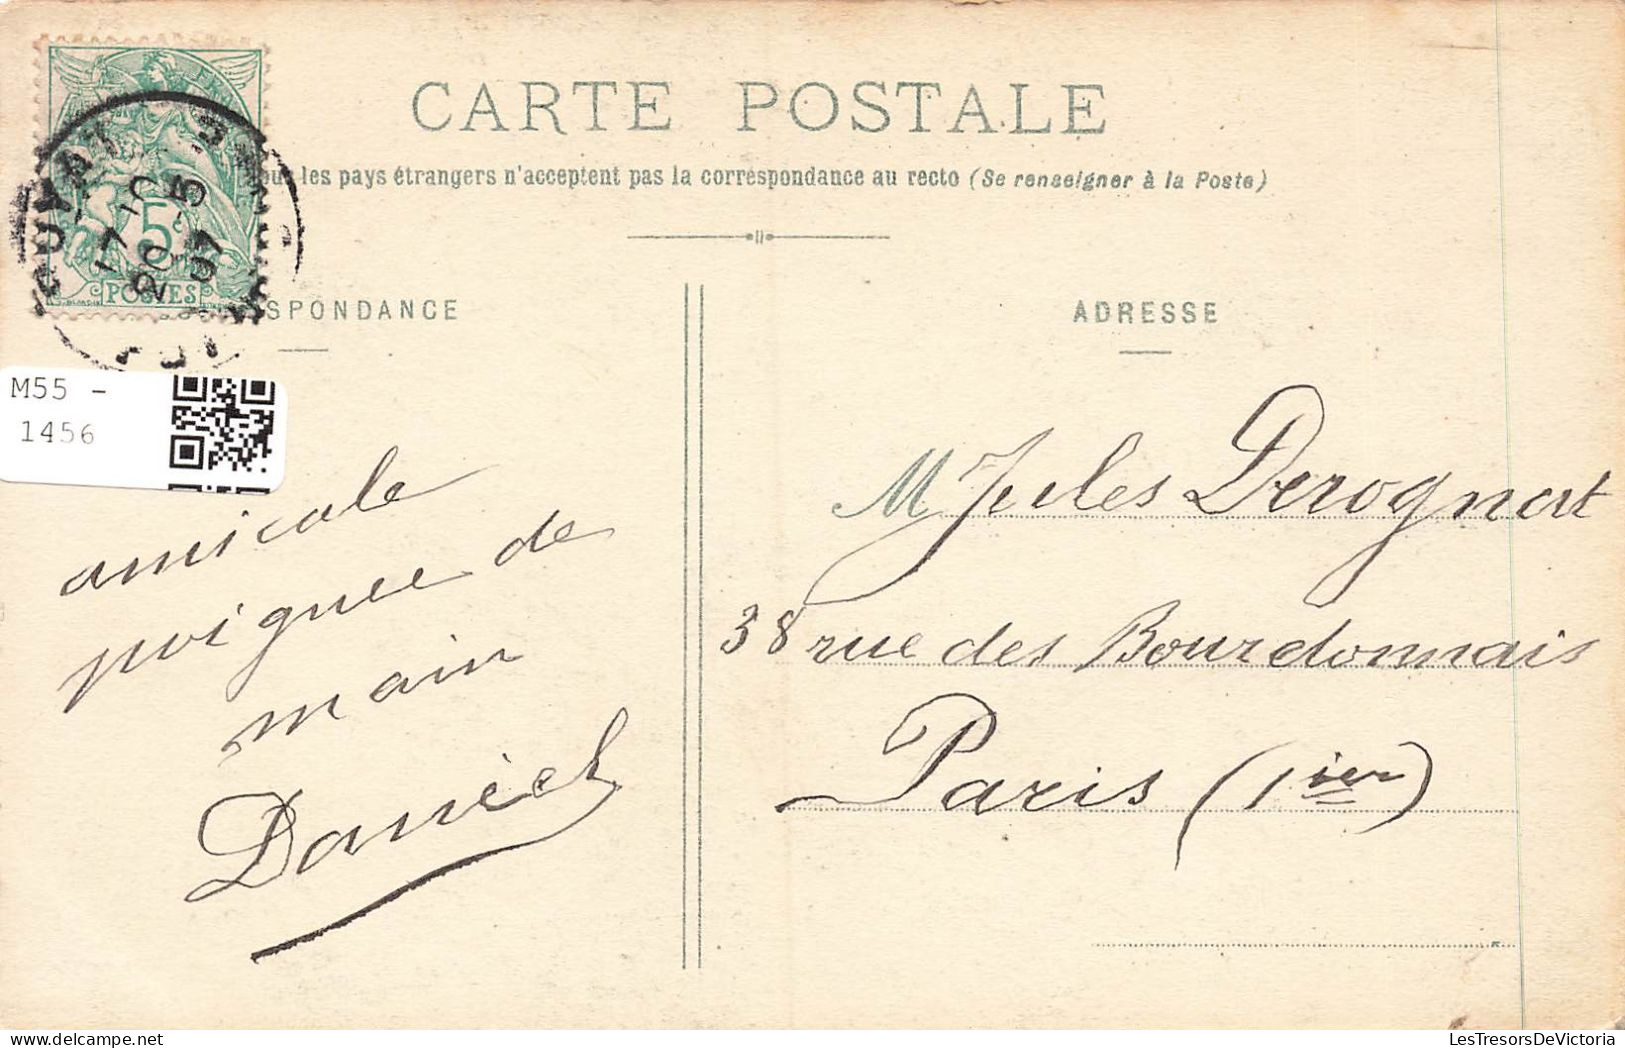 CARTE POSTALE
les pays étrangers n'acceptent pas la correspondance au recto (Se renseigner à la Poste)
5c
POSTES
17 - 5
20 - 5
07
SPONDANCE
ADRESSE
M55 -
1456
amicale
poignee de
main
Daniel
M Jules Derognat
38 rue des Bourdonnais
Paris (1ier)
LesTresorsDeVictoria